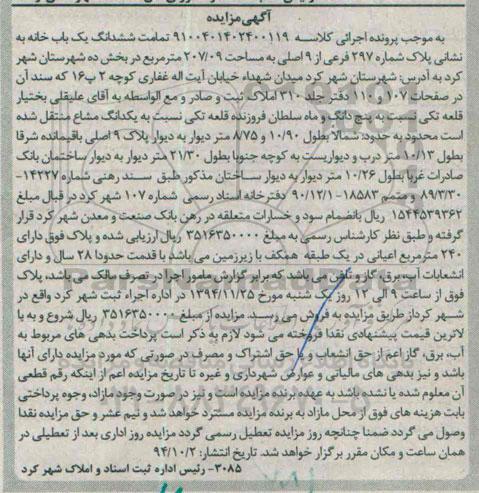 آگهی مزایده
به موجب پرونده اجرائی کلاسه ۹۱۰۰۴۰۱۴۰۲۴۰۰۱۱۹ تمامت ششدانگ یک باب خانه به
نشانی پلاک شماره ۲۹۷ فرعی از ۹ اصلی به مساحت ۲۰۷/۰۹ مترمربع در بخش ده شهرستان شهر
کرد به آدرس: شهرستان شهر کرد میدان شهداء خیابان آیت اله غفاری کوچه ۲ پ۱۶ که سند آن
در صفحات ۱۰۷ و ۱۱۰ دفتر جلد ۳۱۰ املاک ثبت و صادر و مع الواسطه به آقای علیقلی بختیار
قلعه تکی نسبت به پنج دانگ و ماه سلطان فروزنده قلعه تکی نسبت به یکدانگ مشاع منتقل شده
است محدود به حدود: شمالاً بطول ۱۰/۹۰ و ۸/۷۵ متر دیوار به دیوار پلاک ۹ اصلی باقیمانده شرقا
بطول ۱۰/۱۳ متر درب و دیواریست به کوچه جنوبا بطول ۲۱/۳۰ متر دیوار به دیوار ساختمان بانک
صادرات غربا بطول ۱۰/۲۶ متر دیوار به دیوار ساختمان مذکور طبق سند رهنی شماره ۱۴۲۲۷-
۸۹/۳/۳۰ و متمم ۱۸۵۸۳- ۹۰/۱۲/۱ دفترخانه اسناد رسمی شماره ۱۰۷ شهر کرد در قبال مبلغ
۱۵۴۴۵۳۹۳۶۲ ریال بانضمام سود و خسارات متعلقه در رهن بانک صنعت و معدن شهر کرد قرار
گرفته و طبق نظر کارشناس رسمی به مبلغ ۳۵۱۶۳۵۰۰۰۰ ریال ارزیابی شده و پلاک فوق دارای
۲۴۰ مترمربع اعیانی در یک طبقه همکف با زیرزمین می باشد با قدمت حدودا ۲۸ سال و دارای
انشعابات آب، برق، گاز و تلفن می باشد که برابر گزارش مامور اجرا در تصرف مالک می باشد، پلاک
فوق از ساعت ۹ الی ۱۲ روز یک شنبه مورخ ۱۳۹۴/۱۱/۲۵ در اداره اجراء ثبت شهر کرد واقع در
شهر کرداز طریق مزایده به فروش می رسد. مزایده از مبلغ ۳۵۱۶۳۵۰۰۰۰ ریال شروع و به با
لاترین قیمت پیشنهادی نقدا فروخته می شود لازم به ذکر است پرداخت بدهی های مربوط به
آب، برق، گاز اعم از حق انشعاب و یا حق اشتراک و مصرف در صورتی که مورد مزایده دارای آنها
باشد و نیز بدهی های مالیاتی و عوارض شهرداری و غیره تا تاریخ مزایده اعم از اینکه رقم قطعی
آن معلوم شده یا نشده باشد به عهده برنده مزایده است و نیز در صورت وجود مازاد، وجوه پرداختی
بابت هزینه های فوق از محل مازاد به برنده مزایده مسترد خواهد شد و نیم عشر و حق مزایده نقدا
وصول می گردد ضمنا چنانچه روز مزایده تعطیل رسمی گردد مزایده روز اداری بعد از تعطیلی در
همان ساعت و مکان مقرر برگزار خواهد شد. تاریخ انتشار: ۹۴/۱۰/۲
۳۰۸۵- رئیس اداره ثبت اسناد و املاک شهر کرد